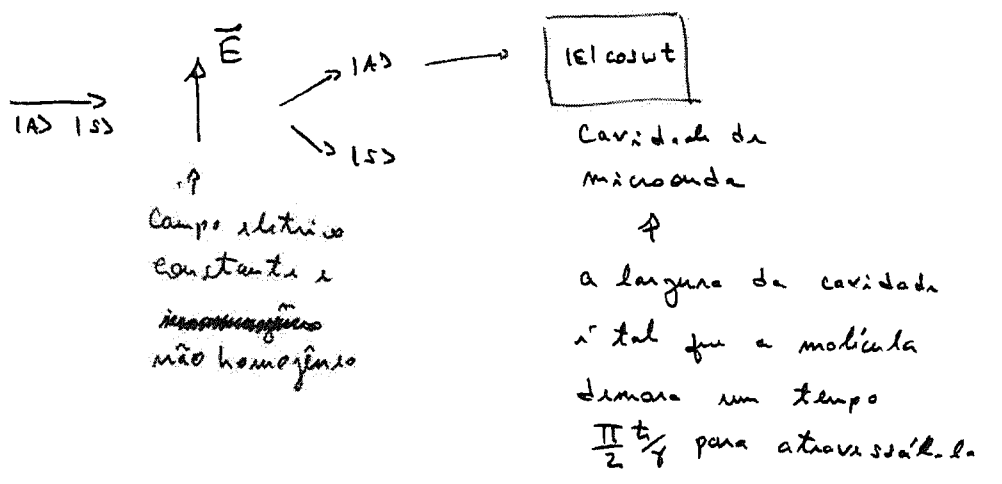 E
|A> |S>
|A>
|S>
|ε| cos ωt
Campo eletrico
constante e
não homogênio
Cavidade de
microonda
a largura da cavidade
é tal que a molécula
demora um tempo
π/2 ħ/γ para atravessál-la